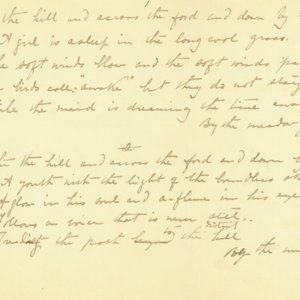 the hill and across the ford and down by
A girl is asleep in the long cool grass.
soft winds blow and the soft winds
birds call: "awake" but they do not
the maid is dreaming the time
By the meadow
the hill and across the ford and down
A youth with the light of the boundless
glow in his soul and a flame in his eye
follows a voice that is never still.
the path to the distant hill
By the